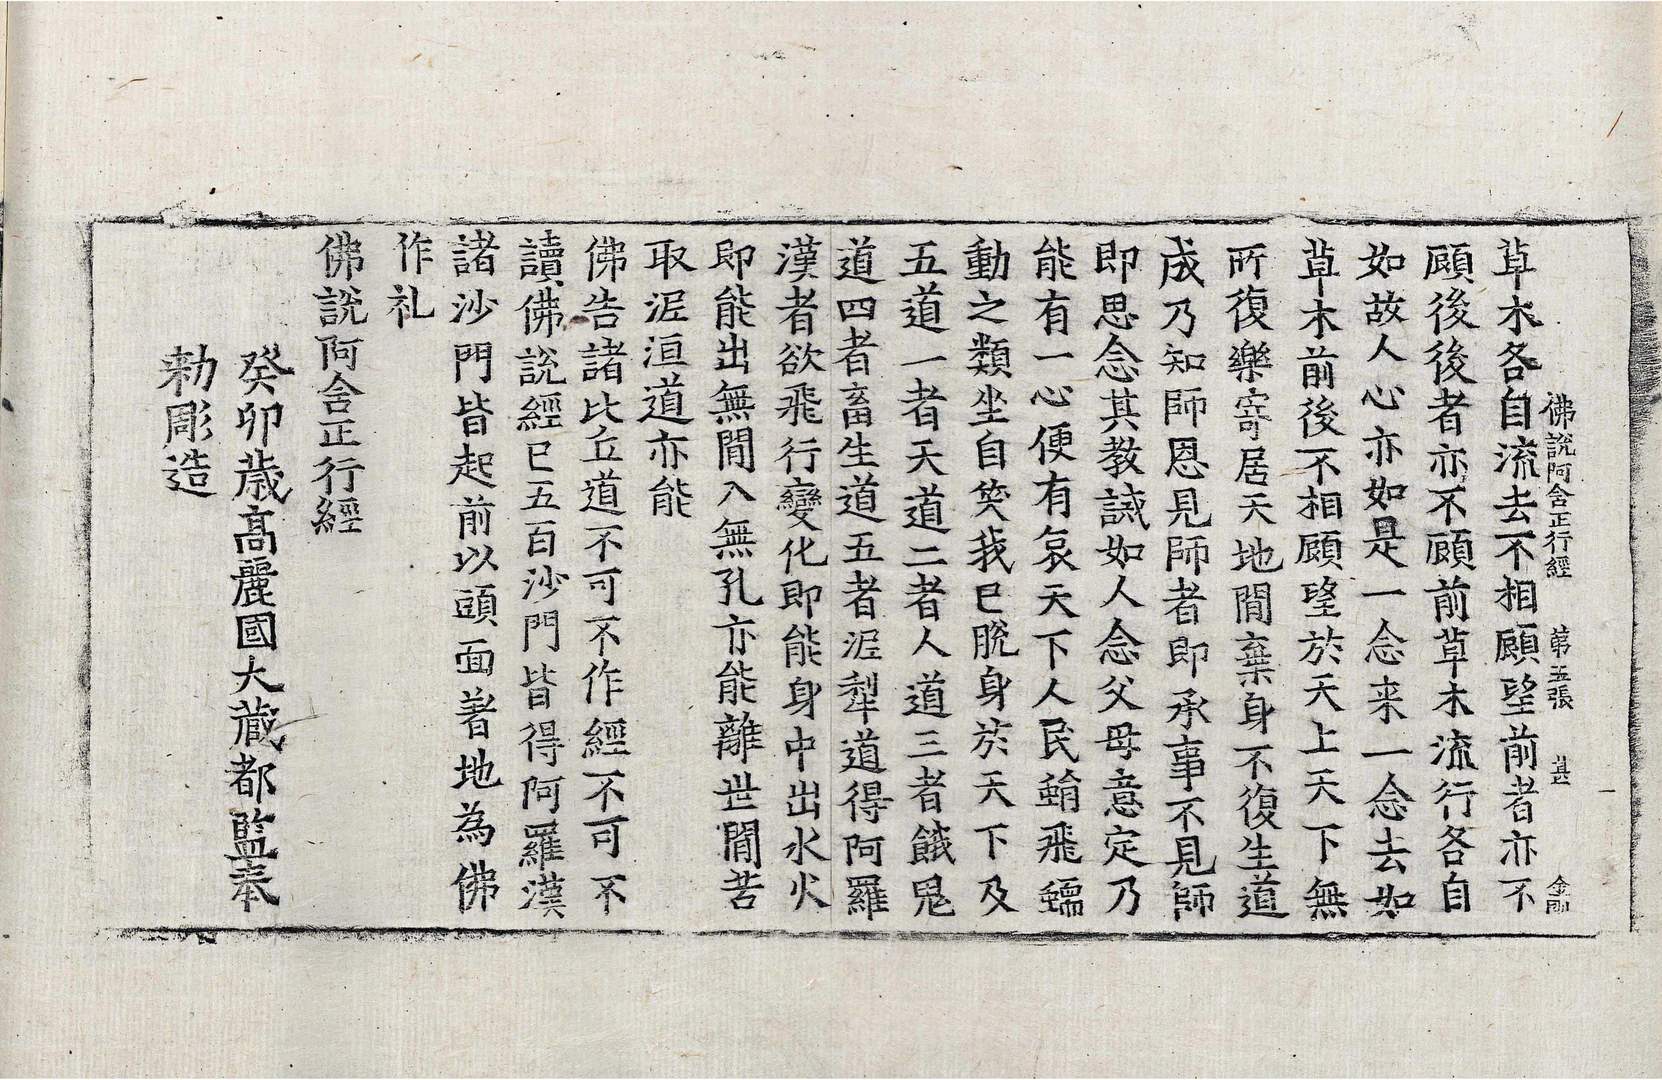 佛說阿含正行經 第五張 甚
草木各自流去不相顧望前者亦不
顧後後者亦不顧前草木流行各自
如故人心亦如是一念来一念去如
草木前後不相顧望於天上天下無
所復樂寄居天地閒棄身不復生道
成乃知師恩見師者即承事不見師
即思念其教誡如人念父母意定乃
能有一心便有哀天下人民蜎飛蠕
動之類坐自笑我已脫身於天下及
五道一者天道二者人道三者餓鬼
道四者畜生道五者泥犁道得阿羅
漢者欲飛行變化即能身中出水火
即能出無閒入無孔亦能離世閒苦
取泥洹道亦能
佛告諸比丘道不可不作經不可不
讀佛說經已五百沙門皆得阿羅漢
諸沙門皆起前以頭面著地為佛
作礼
佛說阿含正行經
癸卯歲高麗國大藏都監奉
勑彫造